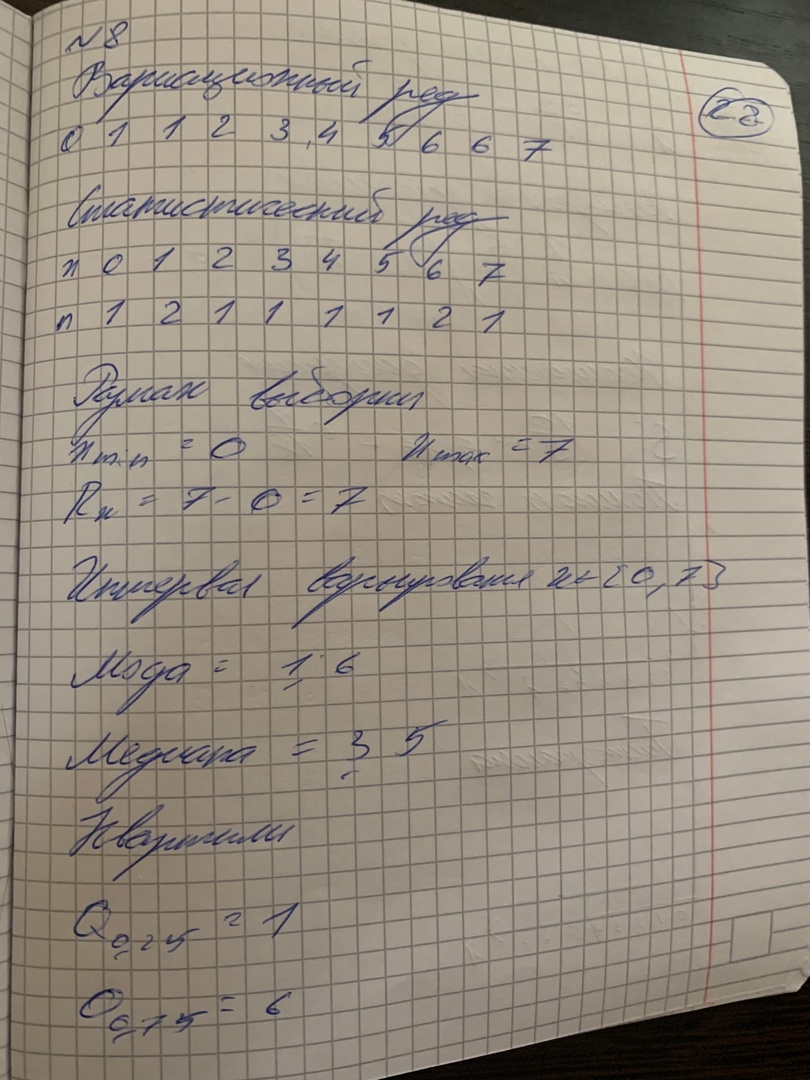 №8
Вариационный ряд
22
0 1 1 2 3 4 5 6 6 7
Статистический ряд
x 0 1 2 3 4 5 6 7
n 1 2 1 1 1 1 2 1
Размах выборки
x min = 0 x max = 7
Rx = 7 - 0 = 7
Интервал варьирования x ∈ [0, 7]
Мода = 1; 6
Медиана = 3,5
Квартили
Q0,25 = 1
Q0,75 = 6